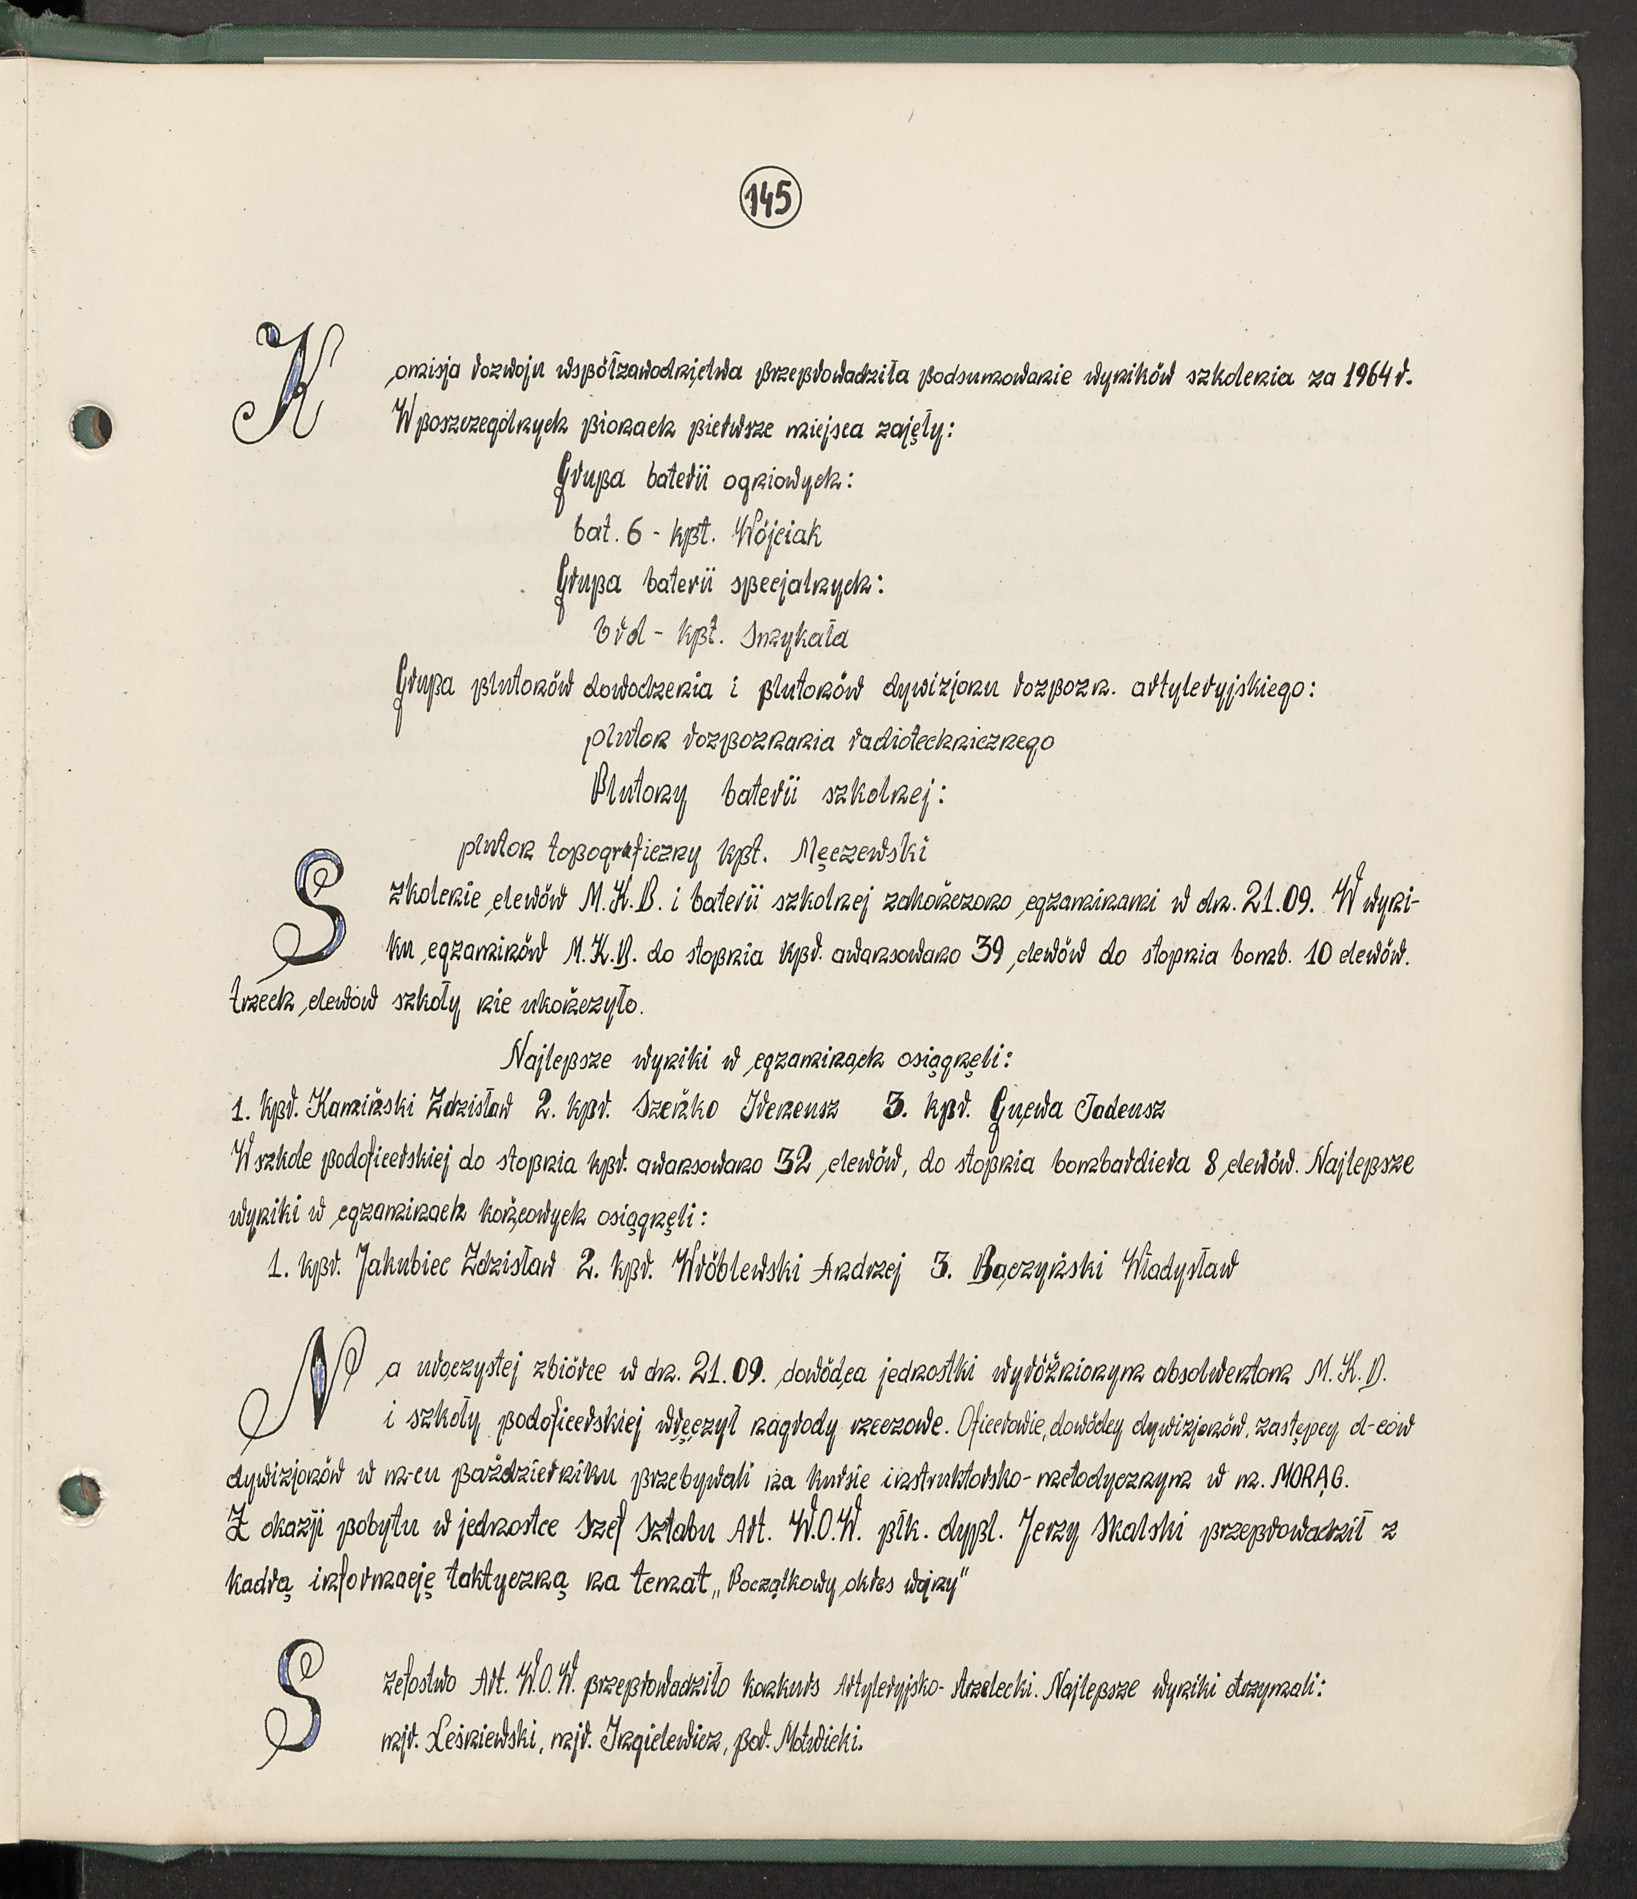 145
Komisja rozwoju współzawodnictwa przeprowadziła podsumowanie wyników szkolenia za 1964 r.
W poszczególnych pionach pierwsze miejsca zajęły:
Grupa baterii ogniowych:
bat. 6 - kpt. Wójciak
Grupa baterii specjalnych:
brd - kpt. Smykała
Grupa plutonów dowodzenia i plutonów dywizjonu rozpozn. artyleryjskiego:
pluton rozpoznania radiotechnicznego
Plutony baterii szkolnej:
pluton topograficzny kpt. Męczewski
Szkolenie elewów M.K.B. i baterii szkolnej zakończono egzaminami w dn. 21.09. W wyni-
ku egzaminów M.K.B. do stopnia kpr. awansowano 39 elewów do stopnia bomb. 10 elewów.
trzech elewów szkoły nie ukończyło.
Najlepsze wyniki w egzaminach osiągnęli:
1. kpr. Kamiński Zdzisław 2. kpr. Szeńko Ireneusz 3. kpr. Guewa Tadeusz
W szkole podoficerskiej do stopnia kpr. awansowano 32 elewów, do stopnia bombardiera 8 elewów. Najlepsze
wyniki w egzaminach końcowych osiągnęli:
1. kpr. Jakubiec Zdzisław 2. kpr. Wróblewski Andrzej 3. Bączyński Władysław
Na uroczystej zbiórce w dn. 21.09. dowódca jednostki wyróżnionym absolwentom M.K.B.
i szkoły podoficerskiej wręczył nagrody rzeczowe. Oficerowie, dowódcy dywizjonów, zastępcy d-ców
dywizjonów w m-cu październiku przebywali na kursie instruktorsko-metodycznym w m. MORĄG.
Z okazji pobytu w jednostce Szef Sztabu Art. W.O.W. płk. dypl. Jerzy Skalski przeprowadził z
kadrą informację taktyczną na temat „Początkowy okres wojny"
Szefostwo Art. W.O.W. przeprowadziło konkurs Artyleryjsko-Strzelecki. Najlepsze wyniki otrzymali:
mjr. Leśniewski, mjr. Imgielewicz, por. Motwicki.